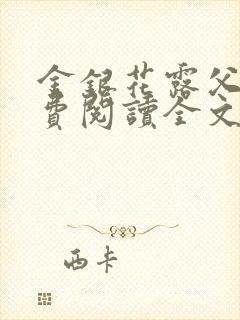 金銀花露父
費閱讀全文
西卡